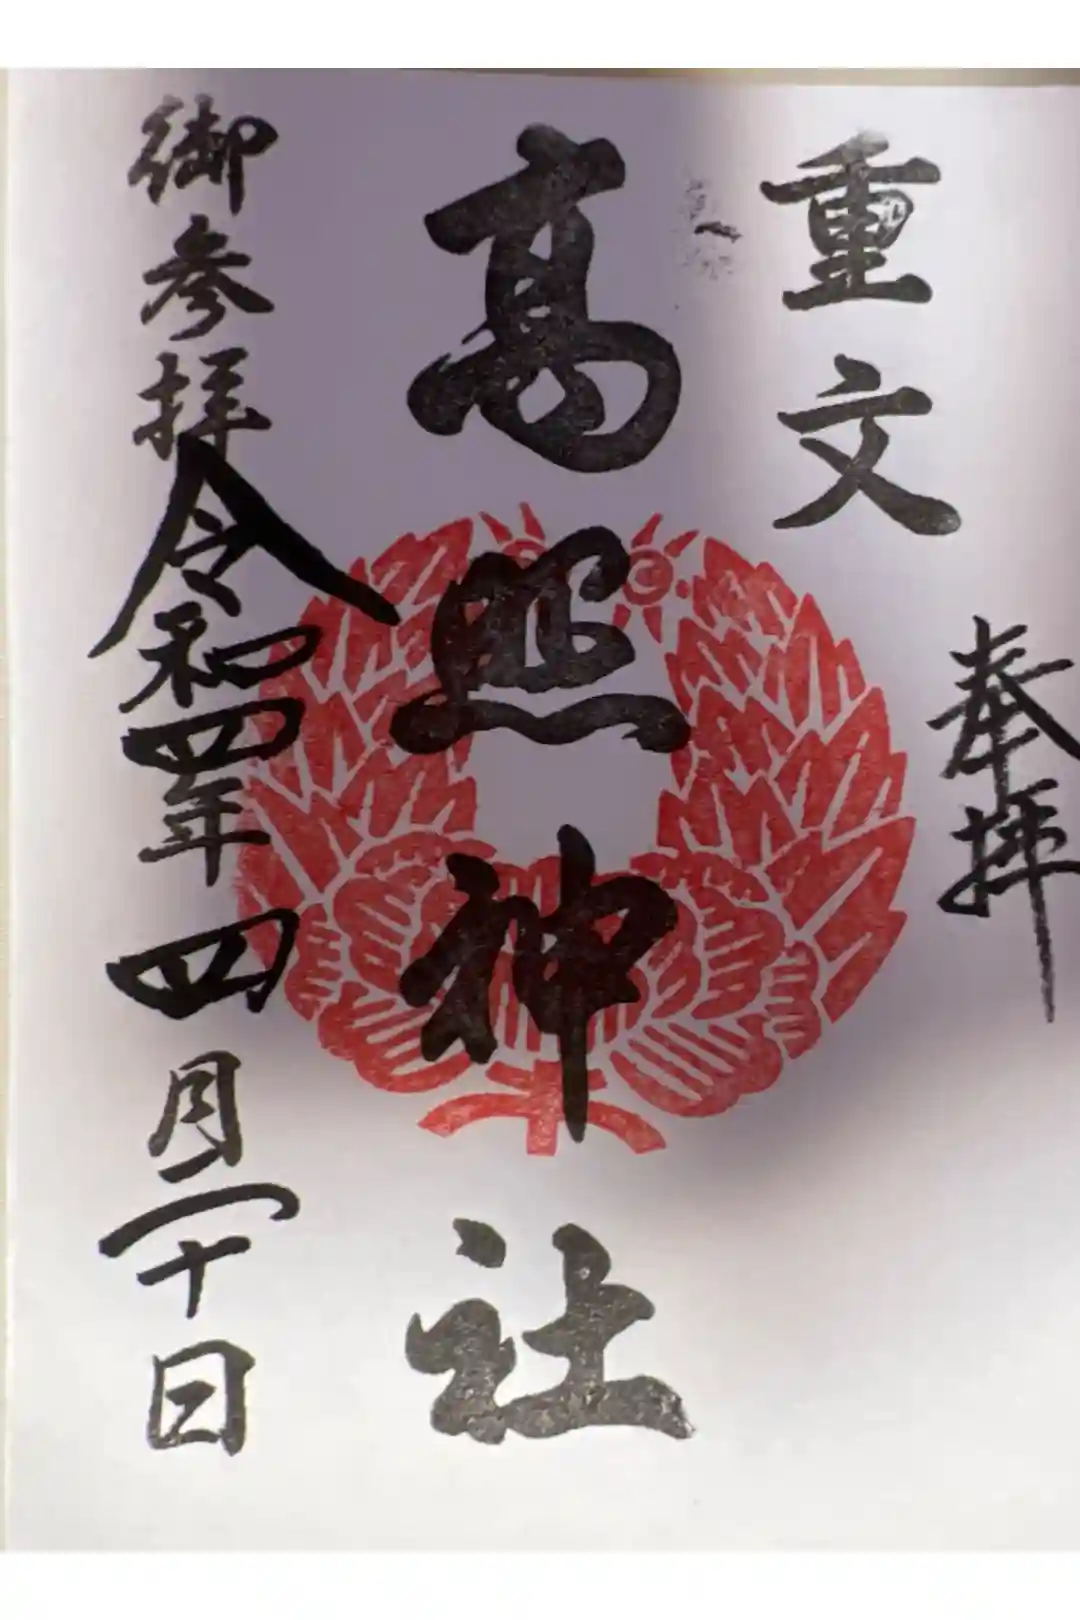 奉拝
重文
高照神社
御参拝
令和四年四月二十日